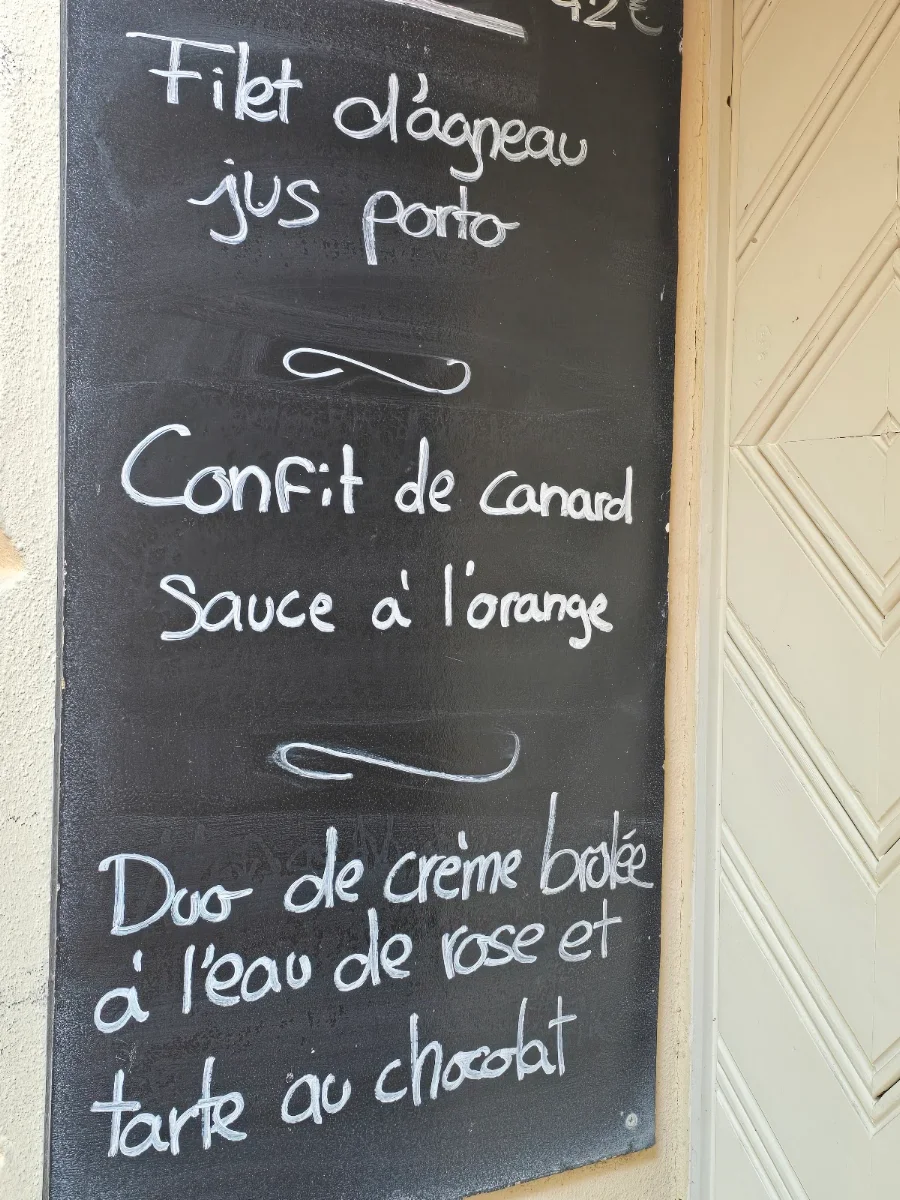 42€
Filet d'agneau
jus porto
Confit de canard
Sauce à l'orange
Duo de crème brulée
à l'eau de rose et
tarte au chocolat